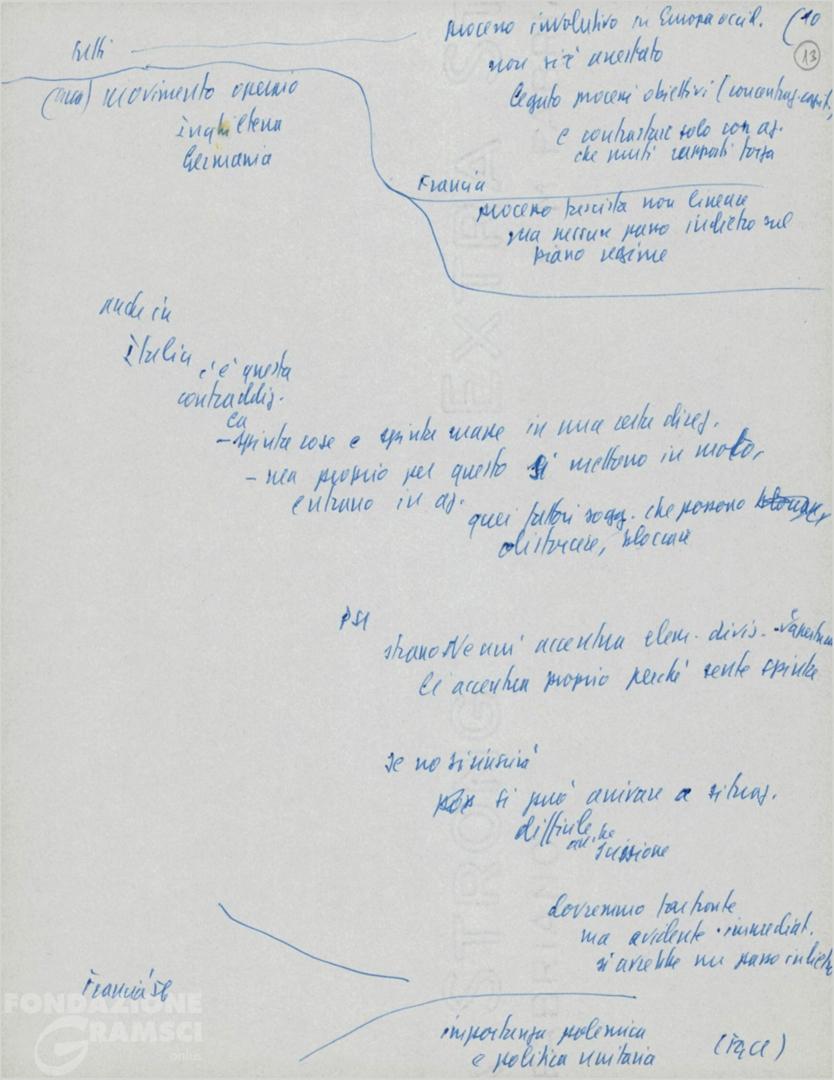 processo involutivo in Europa occid. (10
13
non si è arrestato
legato processi obiettivi (concentraz. capit.,
e contrastare solo con az.
che muti rapporti forza
Fatti
(crisi) movimento operaio
Inghilterra
Germania
Francia
processo fascista non lineare
ma nessun passo indietro sul
piano regime
anche in
Italia c'è questa
contraddiz.
- spinta cose e spinta masse in una certa direz.
- ma proprio per questo si mettono in moto,
entrano in az.
quei fattori sogg. che possono
distorcere, bloccare
PSI
accentua elem. divis.
Li accentua proprio perché sente spinta
se no si
si può arrivare a situaz.
difficile
anche scissione
dovremmo far fronte
ma evidente · immediat.
si avrebbe un passo indietro
Francia
importanza polemica
e politica unitaria
FONDAZIONE
GRAMSCI
onlus
STRONG
EXTRA